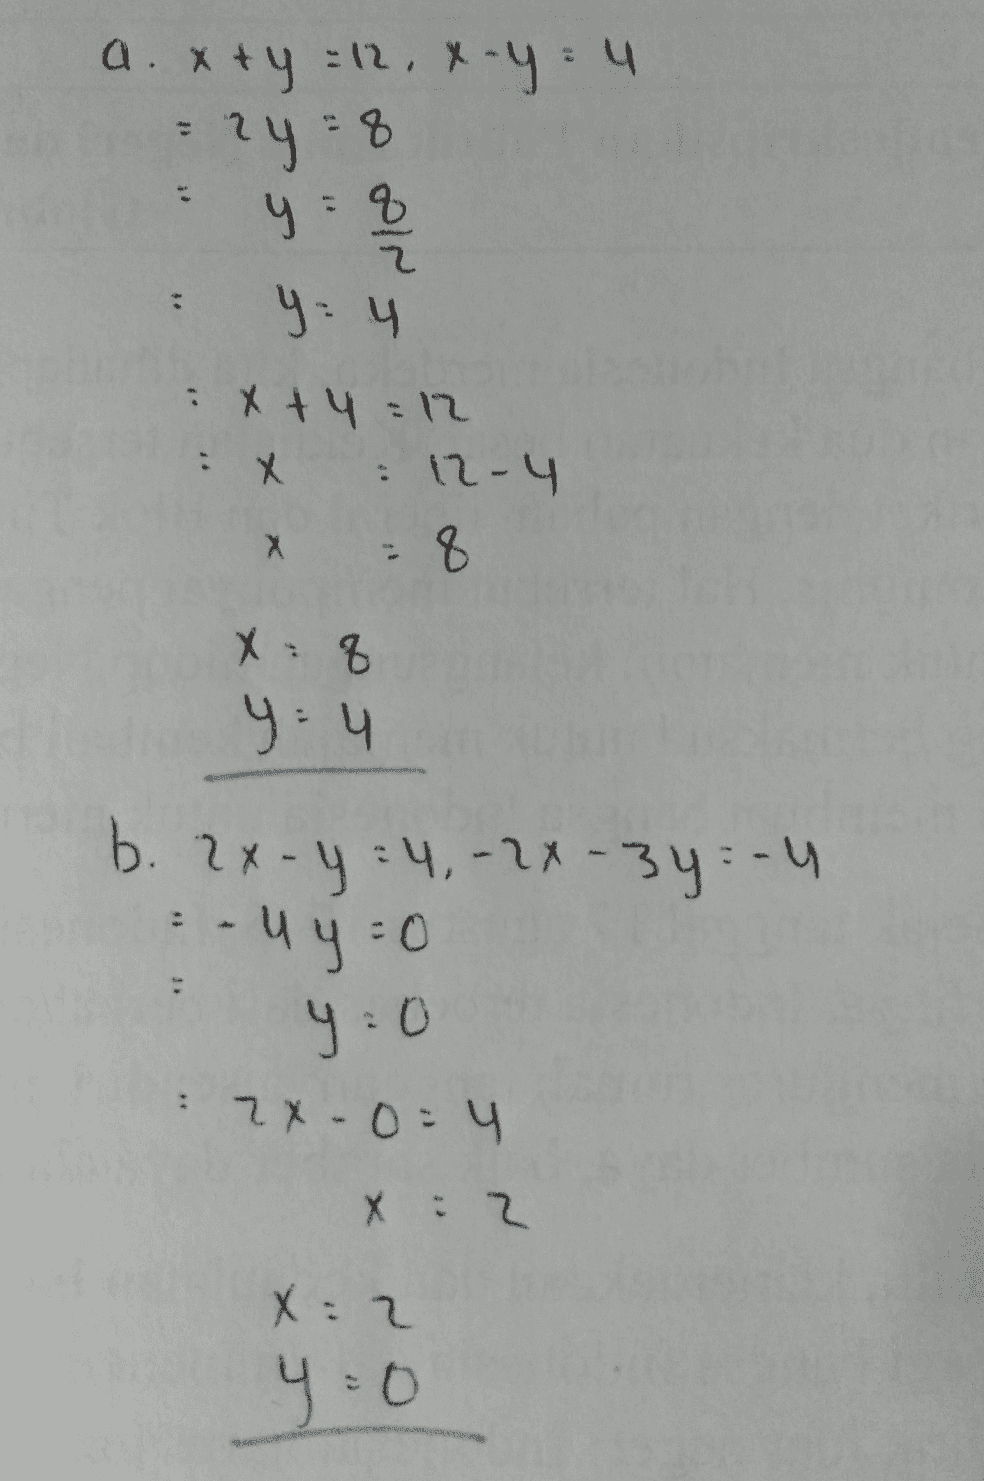 a. x + y = 12, x - y = 4
= 2y = 8
= y = 8/2
= y = 4
= x + 4 = 12
= x = 12 - 4
x = 8
x = 8
y = 4
b. 2x - y = 4, -2x - 3y = -4
= -4y = 0
= y = 0
= 2x - 0 = 4
x = 2
x = 2
y = 0